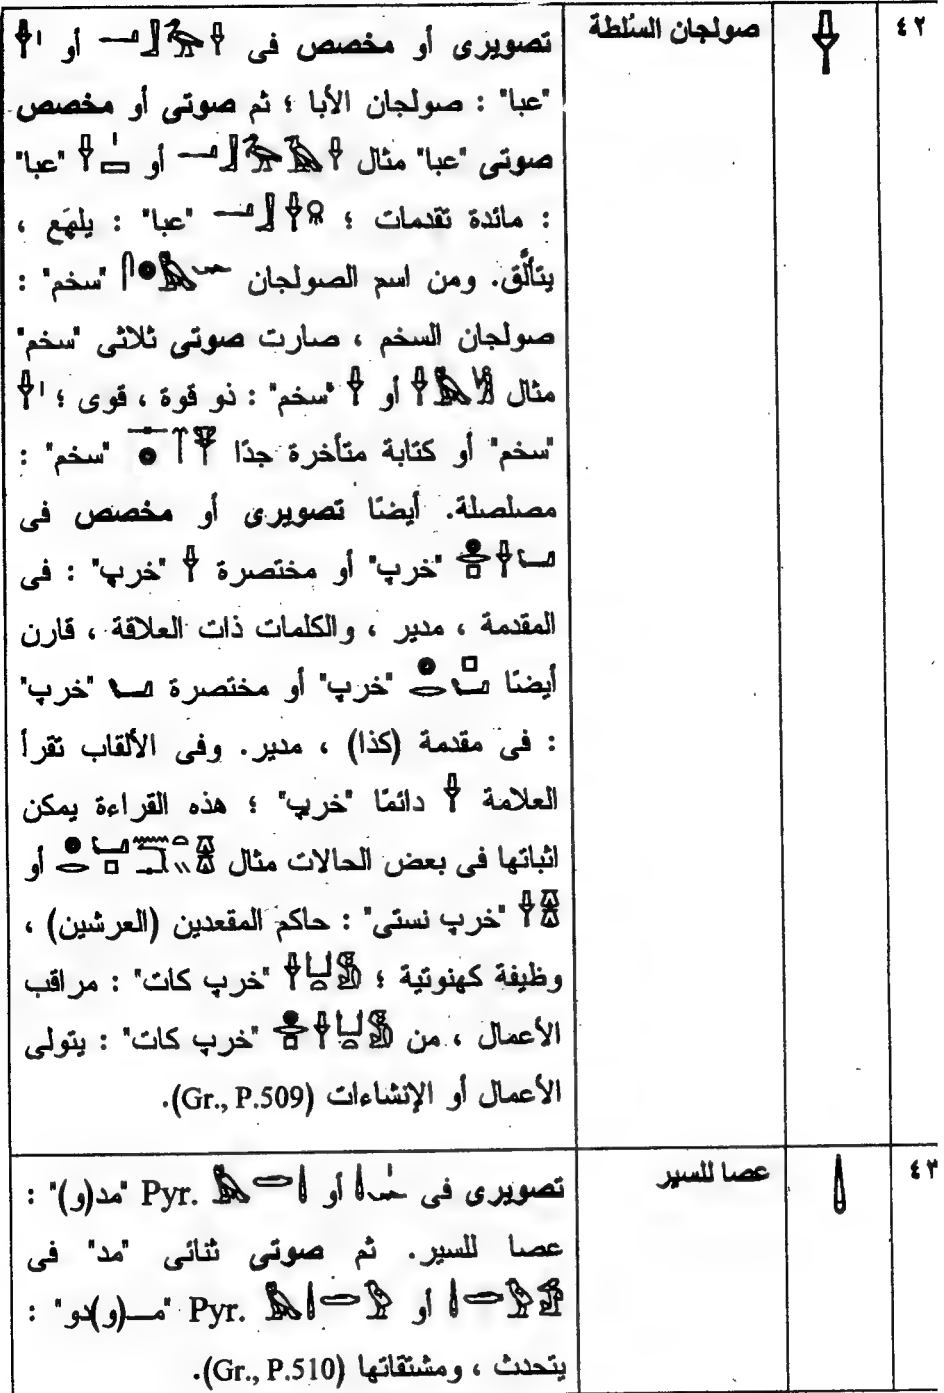 ٤٢ صولجان السّلطة تصويرى أو مخصص فى أو
"عبا" : صولجان الأبا ؛ ثم صوتى أو مخصص
صوتى "عبا" مثال أو "عبا"
: مائدة تقدمات ؛ "عبا" : يلهَع ،
يتألَّق. ومن اسم الصولجان "سخم" :
صولجان السخم ، صارت صوتى ثلاثى "سخم"
مثال أو "سخم" : ذو قوة ، قوى ؛
"سخم" أو كتابة متأخرة جدًا "سخم" :
مصلصلة. أيضًا تصويرى أو مخصص فى
"خرب" أو مختصرة "خرب" : فى
المقدمة ، مدير ، والكلمات ذات العلاقة ، قارن
أيضًا "خرب" أو مختصرة "خرب"
: فى مقدمة (كذا) ، مدير. وفى الألقاب تقرأ
العلامة دائمًا "خرب" ؛ هذه القراءة يمكن
اثباتها فى بعض الحالات مثال أو
"خرب نستى" : حاكم المقعدين (العرشين) ،
وظيفة كهنوتية ؛ "خرب كات" : مراقب
الأعمال ، من "خرب كات" : يتولى
الأعمال أو الإنشاءات (Gr., P.509).
٤٣ عصا للسير تصويرى فى أو Pyr. "مد(و)" :
عصا للسير. ثم صوتى ثنائى "مد" فى
أو Pyr. "مـ(و)دو" :
يتحدث ، ومشتقاتها (Gr., P.510).